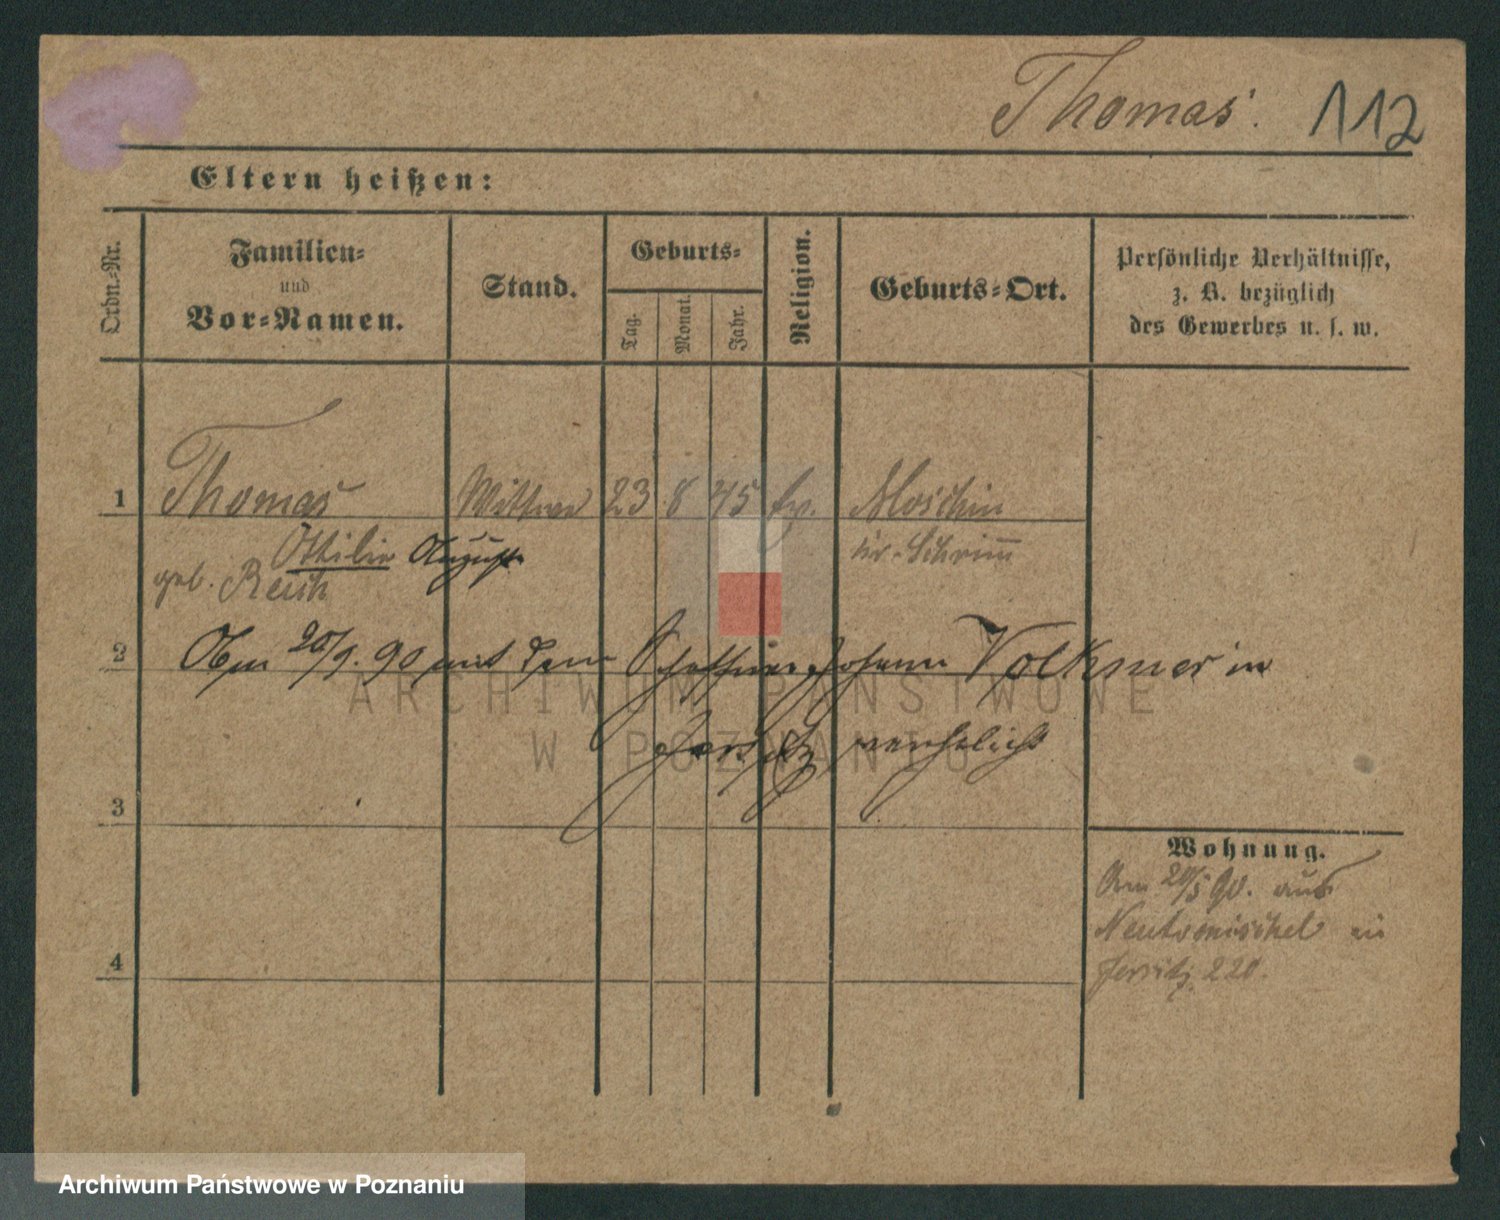 Thomas. 112
Eltern heißen:
Ordn.-Nr.
Familien-
und
Vor-Namen.
Stand.
Geburts-
Tag.
Monat.
Jahr.
Religion.
Geburts-Ort.
Persönliche Verhältnisse,
z. B. bezüglich
des Gewerbes u. s. w.
1 Thomas Wittwe 23 8 45 ev. Moschin
Ottilie Auguste Kr. Schrimm
geb. Reich
2 Am 20/9. 90 mit dem Schaffner Johann Volkmer in
Jersitz verehelicht
3
Wohnung.
Am 20/5 90. aus
Neutomischel in
Jersitz 220.
4
ARCHIWUM PAŃSTWOWE
W POZNANIU
Archiwum Państwowe w Poznaniu